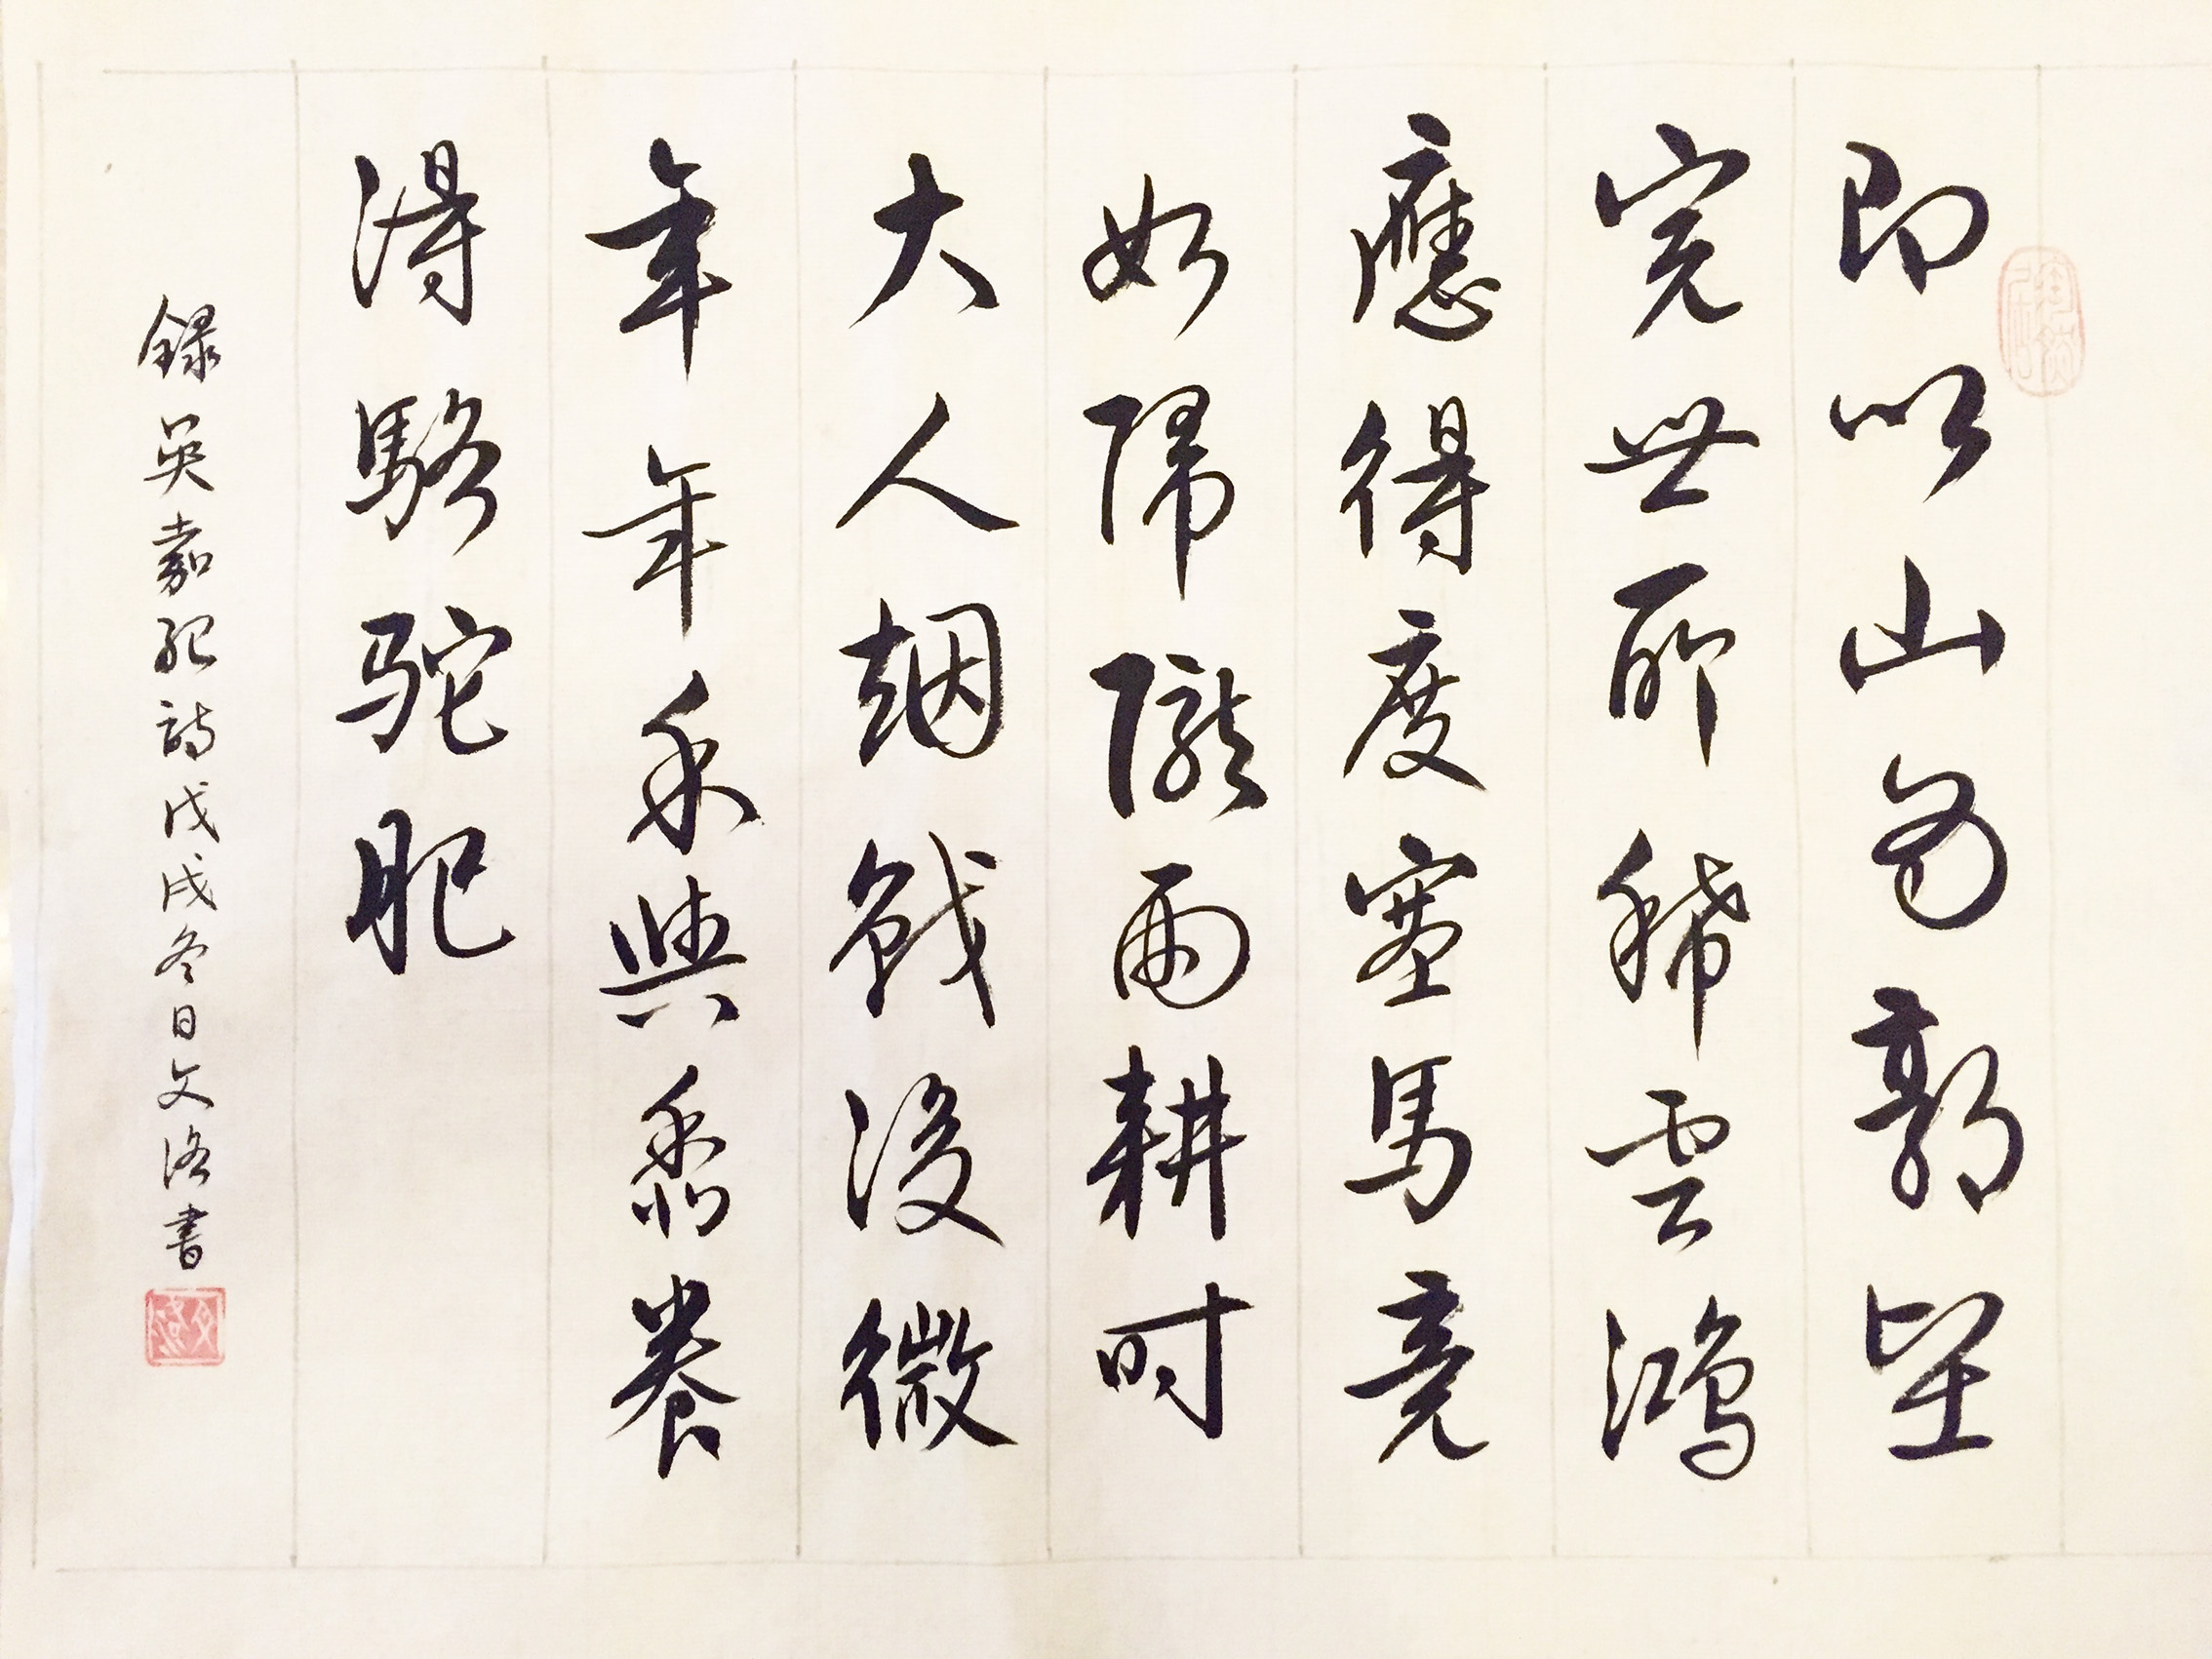 即以山為郭堅
完世所稀雲鴻
應得度塞馬竟
如歸隴雨耕時
大人烟戰後微
年年禾與黍養
得駱駝肥
録吳嘉紀詩戊戌冬日文洛書